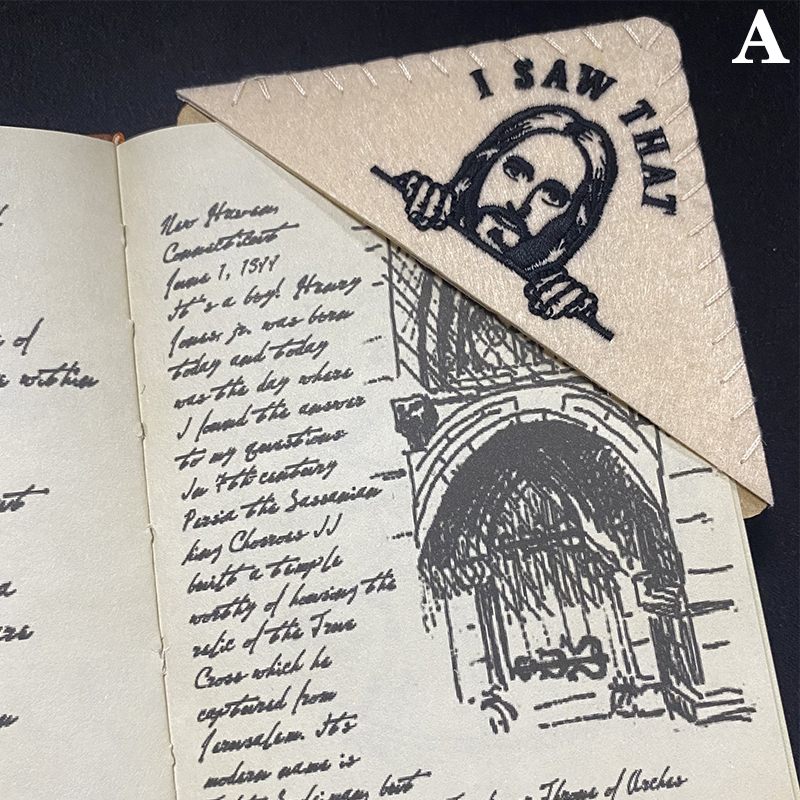 A
I SAW THAT
of
within
New Haven,
Connecticut
June 1, 1899
It's a boy! Henry
Jones, jr. was born
today and today
was the day where
I found the answer
to my questions
In 7th century
Persia the Sassanian
king Chosroes II
built a temple
worthy of housing the
relic of the True
Cross which he
captured from
Jerusalem. It's
modern name is
but
Throne of Arches